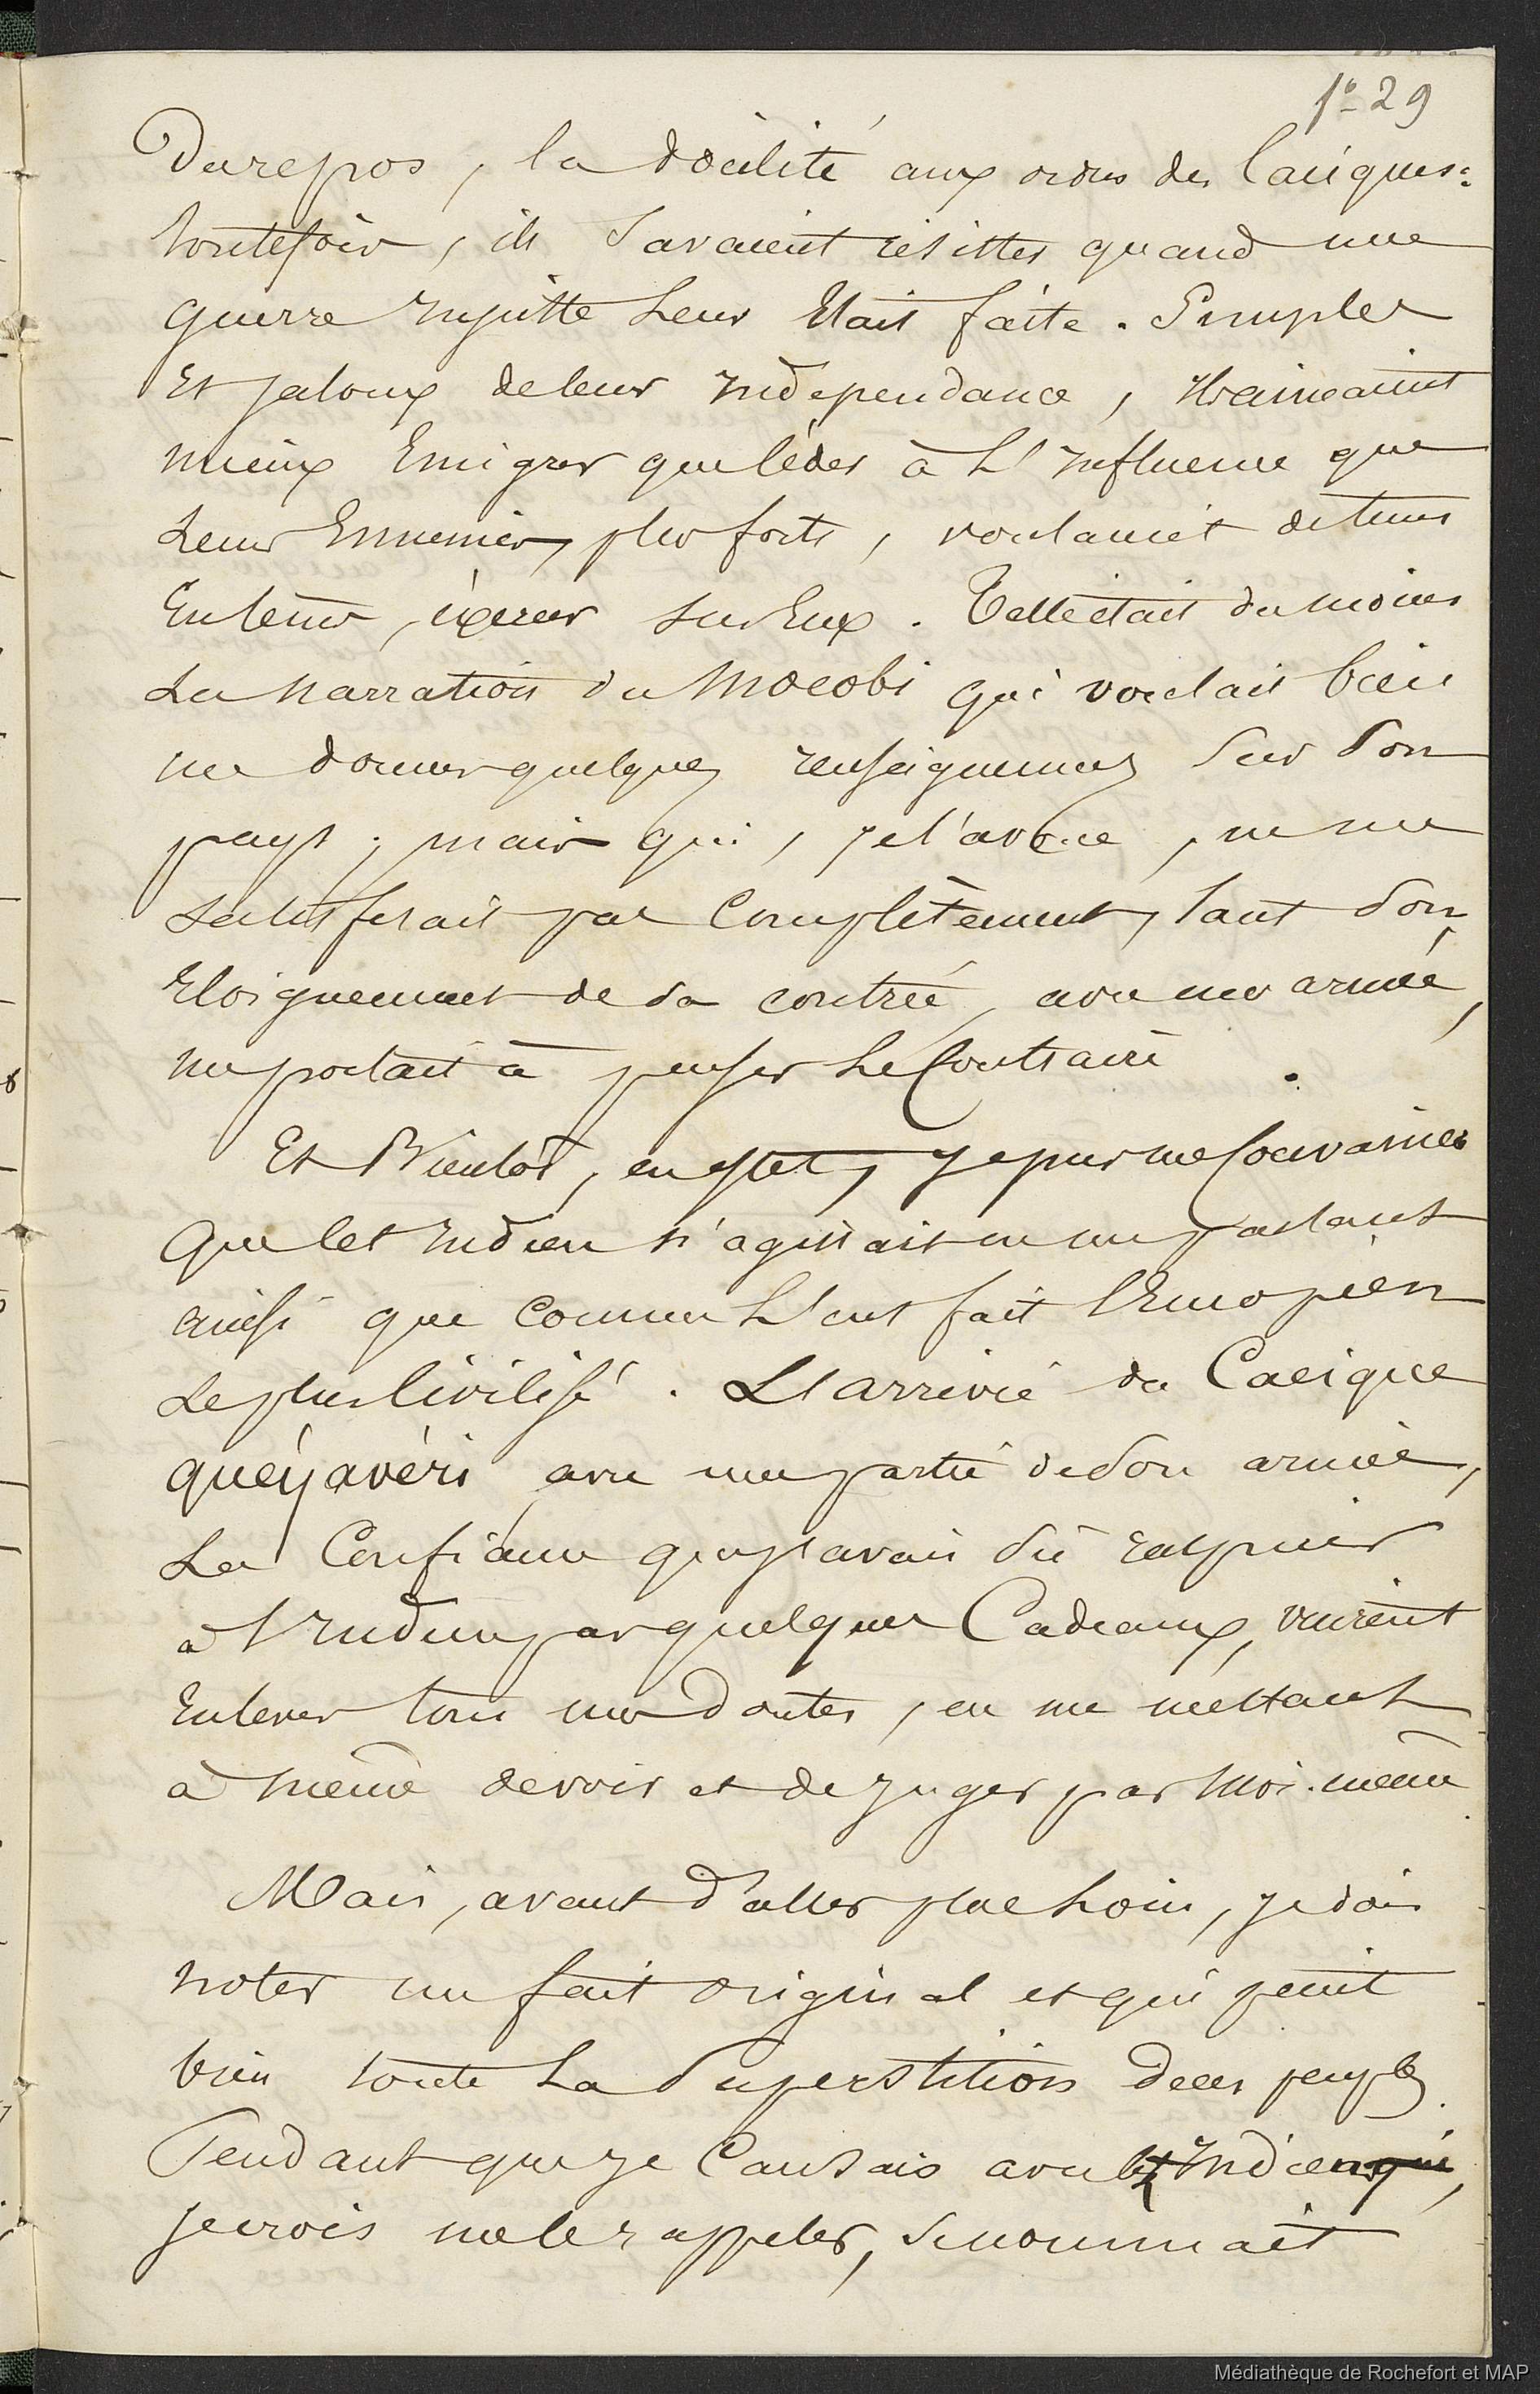 f° 29
Du repos, la docilité aux ordres des Caciques:
toutefois, ils Savaient résister quand une
guerre injuste Leur Etait faite. Simples
Et jaloux de leur independance, ils aimaient
mieux Emigrer que Céder à L'influence que
Leurs Ennemis, plus forts, voulaient de tems
En tems, éxercer sur Eux. Telle était du moins
La Narration du Mocobi qui voulait bien
me donner quelques renseignemens Sur Son
pays; mais qui, je l'avoue, ne me
satisferait pas Complètement, tant Son
Eloignement de sa contrée, avec une armée,
me portait à penser Le Contraire.
Et Bientôt, en effet, je pus me Convaincre
Que cet indien n'agissait en me parlant
ainsi que comme L'eut fait l'Européen
Le plus Civilisé. L'arrivée du Cacique
quéyavéri avec une partie de Son armée,
La Confiance que j'avais dû inspirer
à l'indien par quelques Cadeaux, vinrent
Enlever tous mes Doutes, en me mettant
à même de voir et de juger par Moi-même.
Mais, avant d'aller plus Loin, je dois
noter un fait original et qui peint
bien toute La Superstition de ces peuples.
Pendant que je Causais avec cet Indien qui,
je crois me le rappeler, Se nommait
Médiathèque de Rochefort et MAP